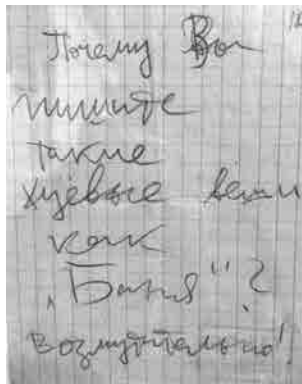 Почему Вы
пишите
такие
хуёвые вещи
как
„Баня“?
Возмутительно!